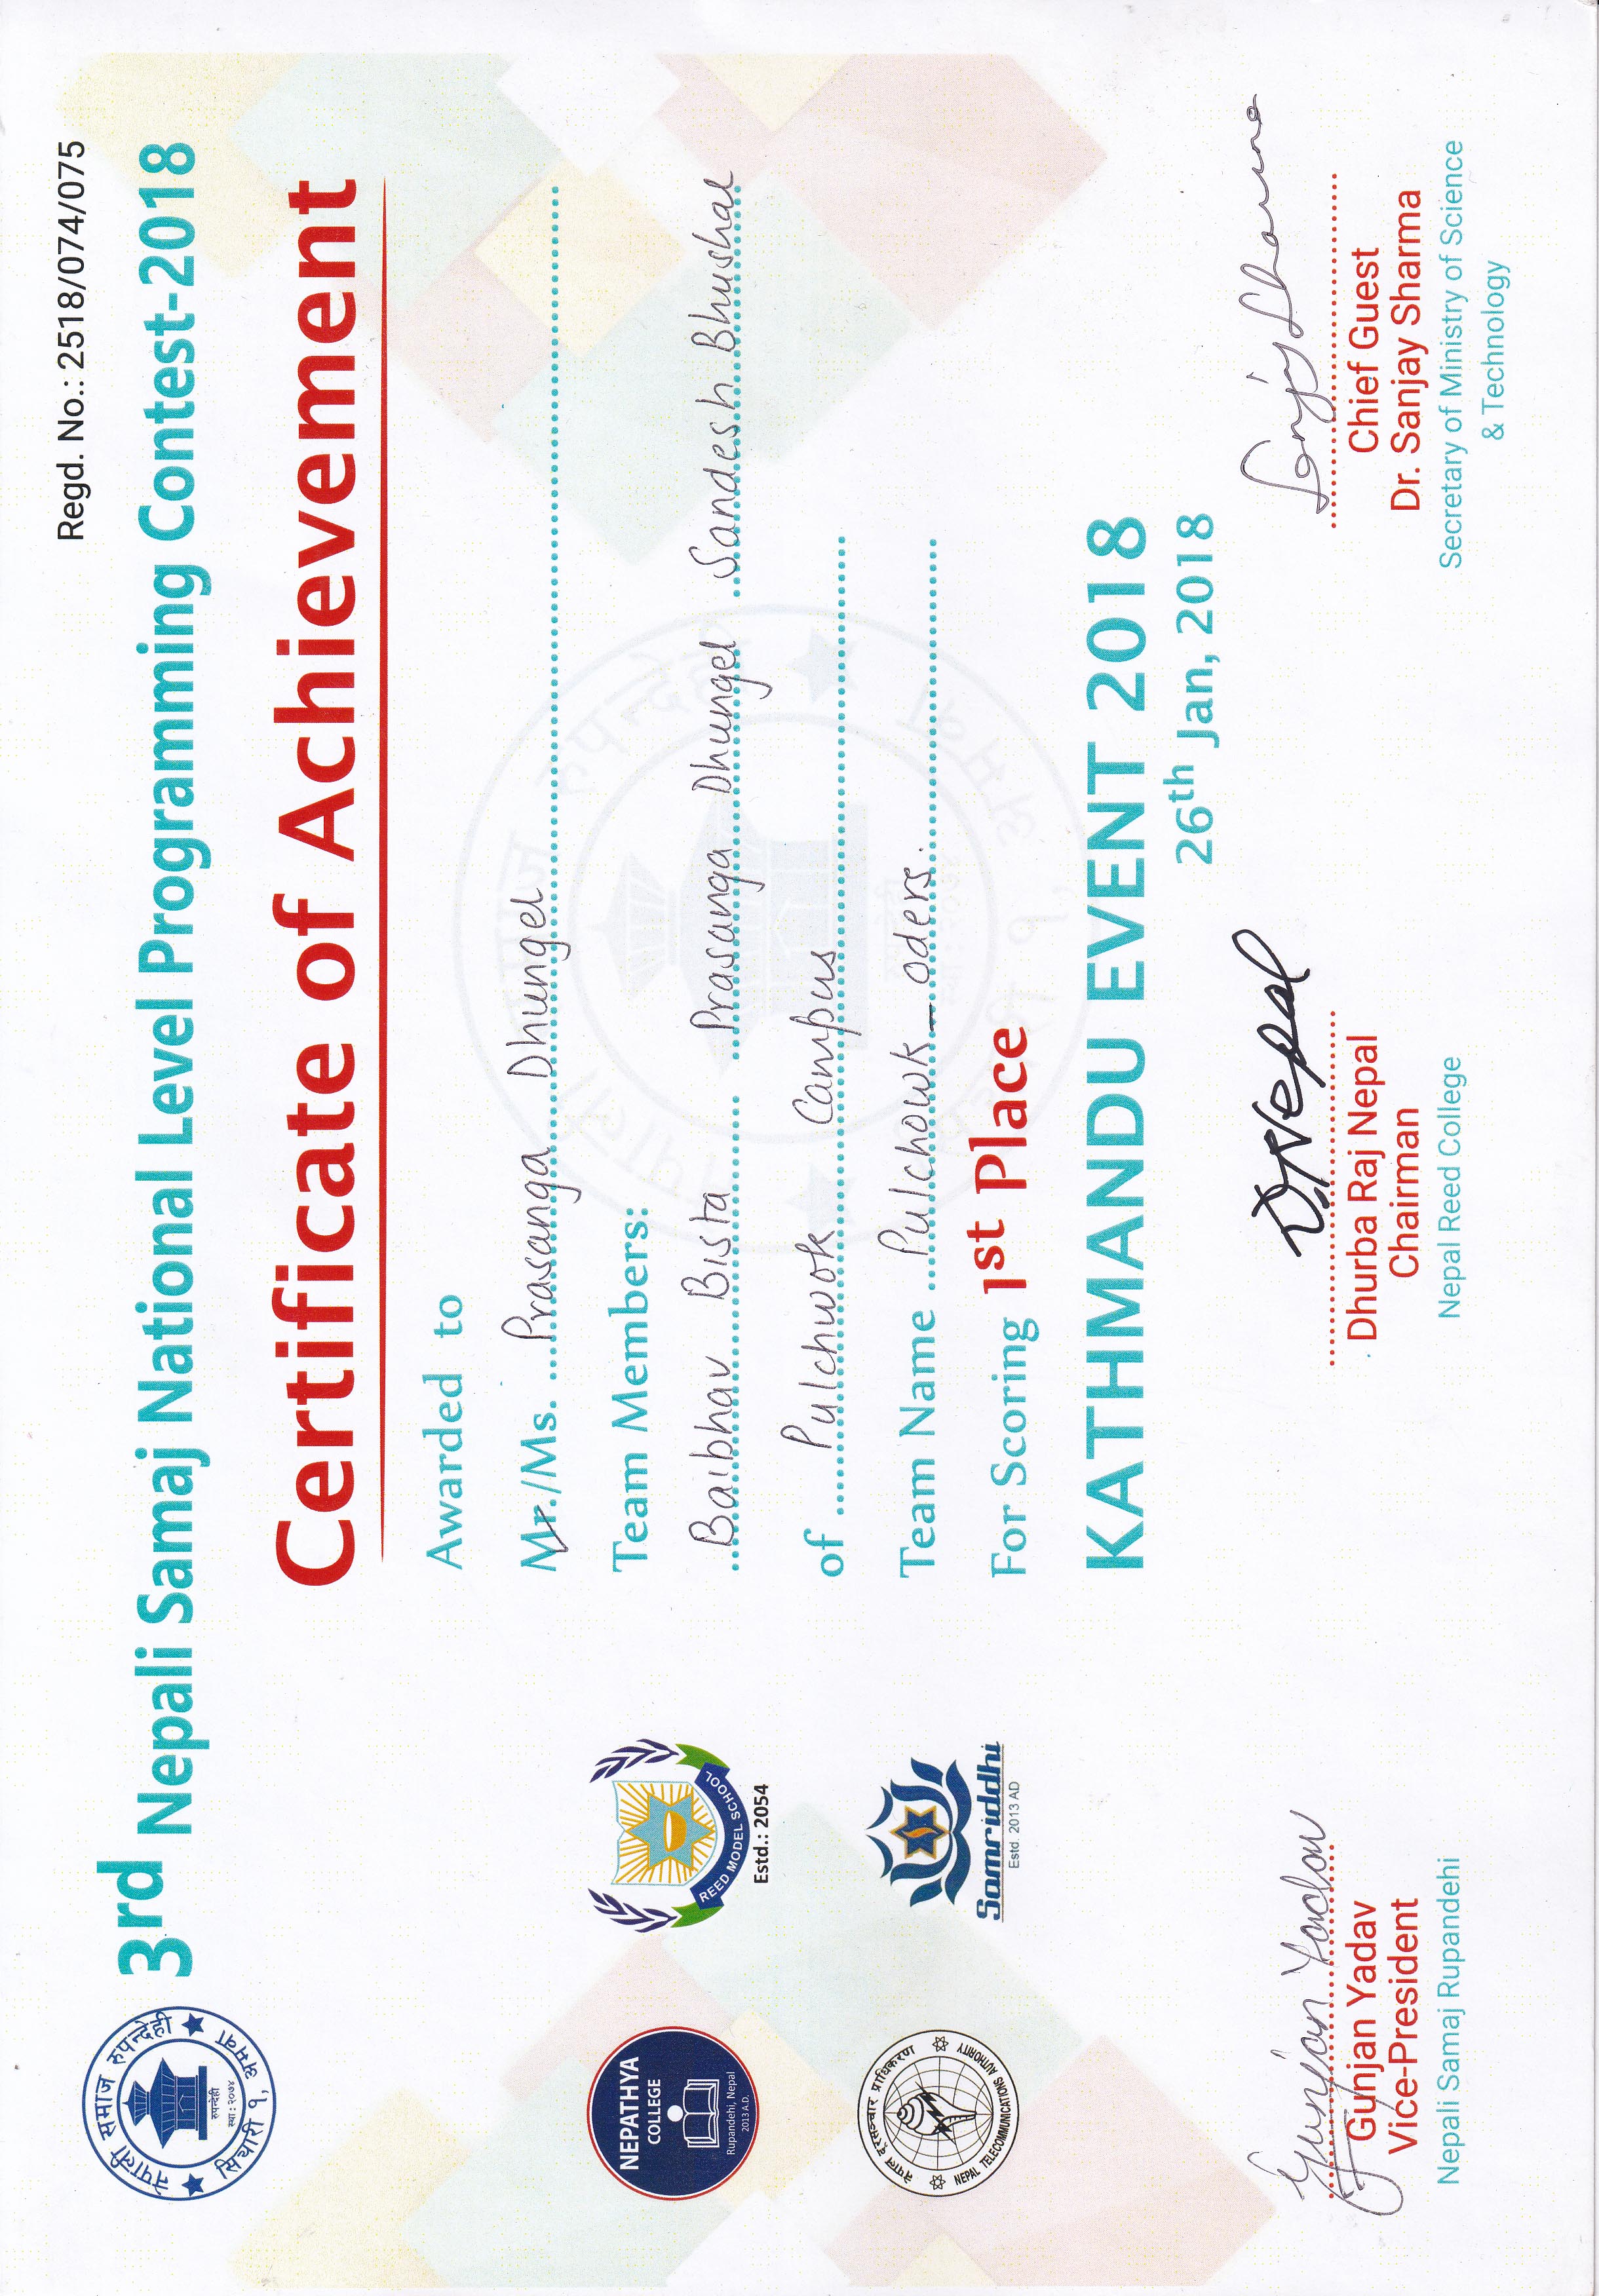 Regd. No.: 2518/074/075
नेपाली समाज रुपन्देही
रुपन्देही
स्था : २०७४
सियारी १, अमवा
3rd Nepali Samaj National Level Programming Contest-2018
Certificate of Achievement
Awarded to
Mr./Ms. Prasanga Dhungel
Team Members:
Baibhav Bista Prasanga Dhungel Sandesh Bhushal
of Pulchwok Campus
Team Name Pulchowk_oders.
For Scoring 1st Place
KATHMANDU EVENT 2018
26th Jan, 2018
NEPATHYA
COLLEGE
Rupandehi, Nepal
2013 A.D.
REED MODEL SCHOOL
Estd.: 2054
नेपाल दूरसञ्चार प्राधिकरण
NEPAL TELECOMMUNICATIONS AUTHORITY
Samriddhi
Estd. 2013 AD
Gunjan Yadav
Gunjan Yadav
Vice-President
Nepali Samaj Rupandehi
D.Nepal
Dhurba Raj Nepal
Chairman
Nepal Reed College
Sanjay Sharma
Chief Guest
Dr. Sanjay Sharma
Secretary of Ministry of Science
& Technology